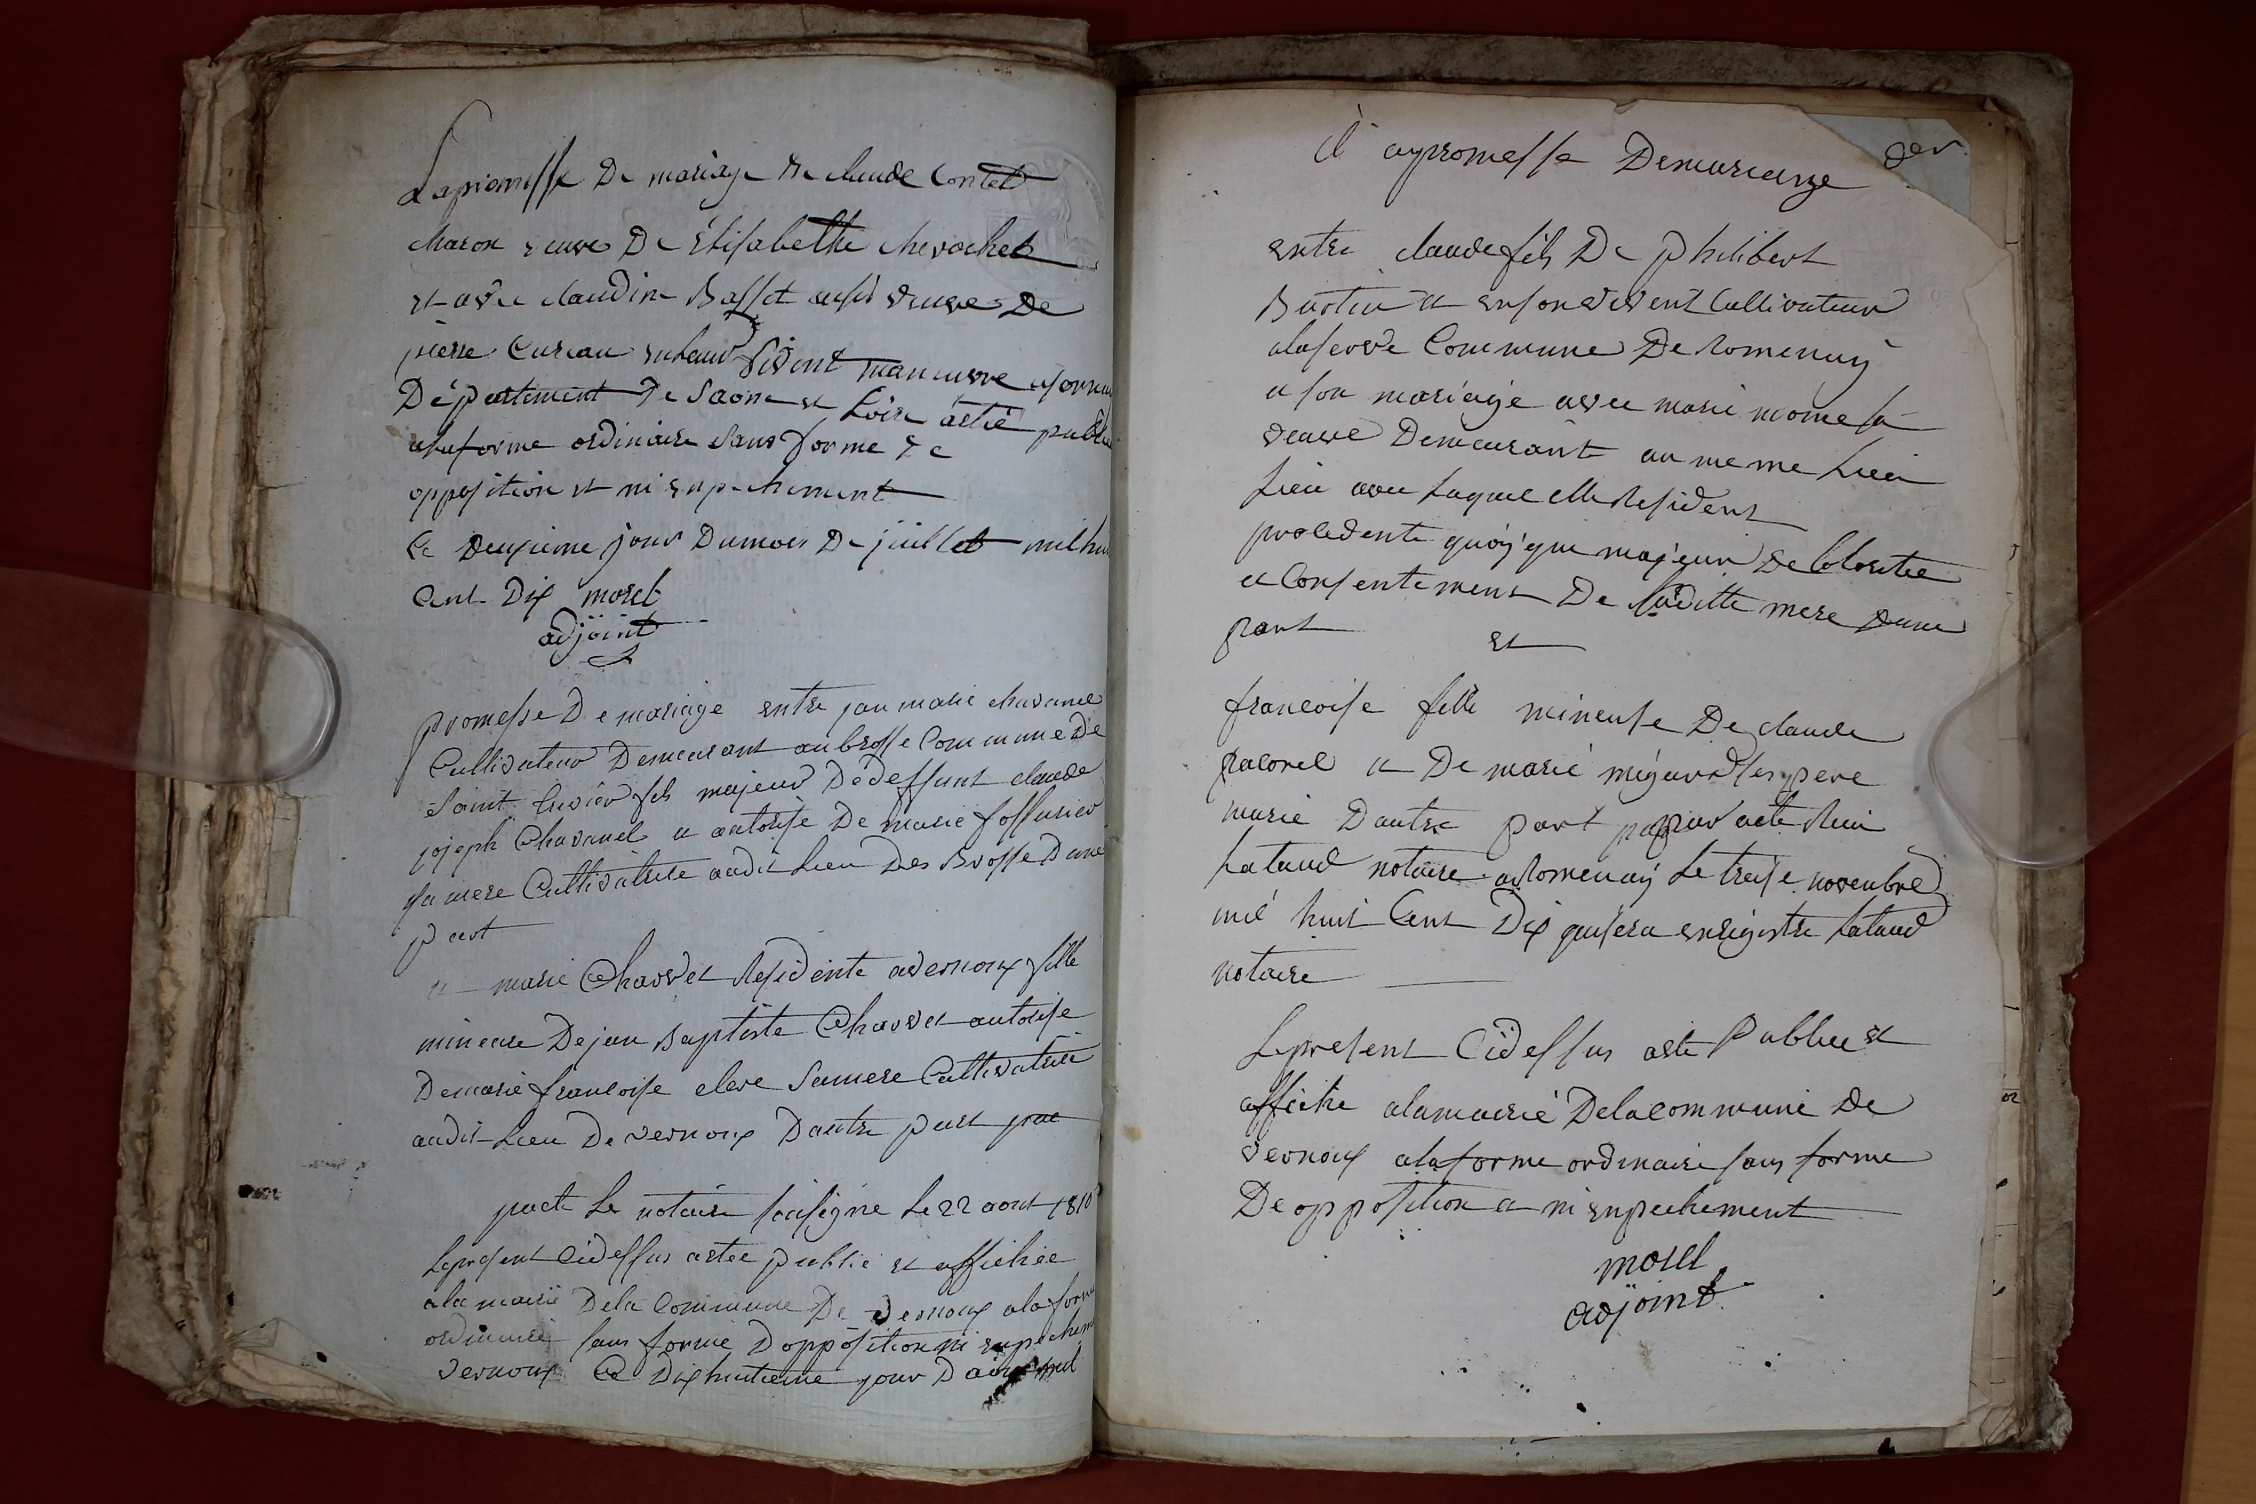 Lapromesse De mariage De claude Contet
veuve De Élisabethe chevochet
et avec claudine Basset aussi veuve De
pierre Cureau vivent maneuvre
Département De Saone et Loire
alaforme ordinaire sans forme De
opposition et ni enpechement
Ce Deuxieme jour Dumois De juillet mil hui
Cent Dix morel
adjoint
promesse De mariage entre jan marie chavanel
Cultivateur Demeurant au brosse Commune De
Saint fils majeur De deffunt claude
joseph Chavanel et autorise De marie
sa mere Cultivatrice audit Lieu Des Brosse Dune
part
et marie Chavvet Residente avernoux fille
mineure De jean Baptiste Chavvet autorise
Demarie francoise elere Samere Cultivatrice
audit Lieu De vernoux Dautre part
Le notaire soussigné Le 22 aout 1810
Lepresent Cidessus astée publié et affichée
ala mairie Dela Commune De vernoux ala forme
ordinaire sans forme Dopposition ni enpechem
vernoux Ce Dix huitieme jour mil
Il aypromesse Demariage
entre claude fils De philibert
Burtin et ensonvivent Cultivateur
Commune De Romenay
a son mariage avec marie
veuve Demeurant au meme Lieu
Lieu avec Laquelle Resident
procedente quoy que majeur De
et Consentement De Laditte mere Dune
part et
francoise fille mineuse De claude
pacorel et De marie ses pere
marie Dautre part par acte
Lataud notaire aRomenay Le treise novembre
mil huit Cent Dix quisera enregistre Lataud
notaire
Lepresent Cidessus aste Publiee et
affiche alamairie Delacommune De
vernoux alaforme ordinaire sans forme
De opposition et ni enpechement
morel
adjoint